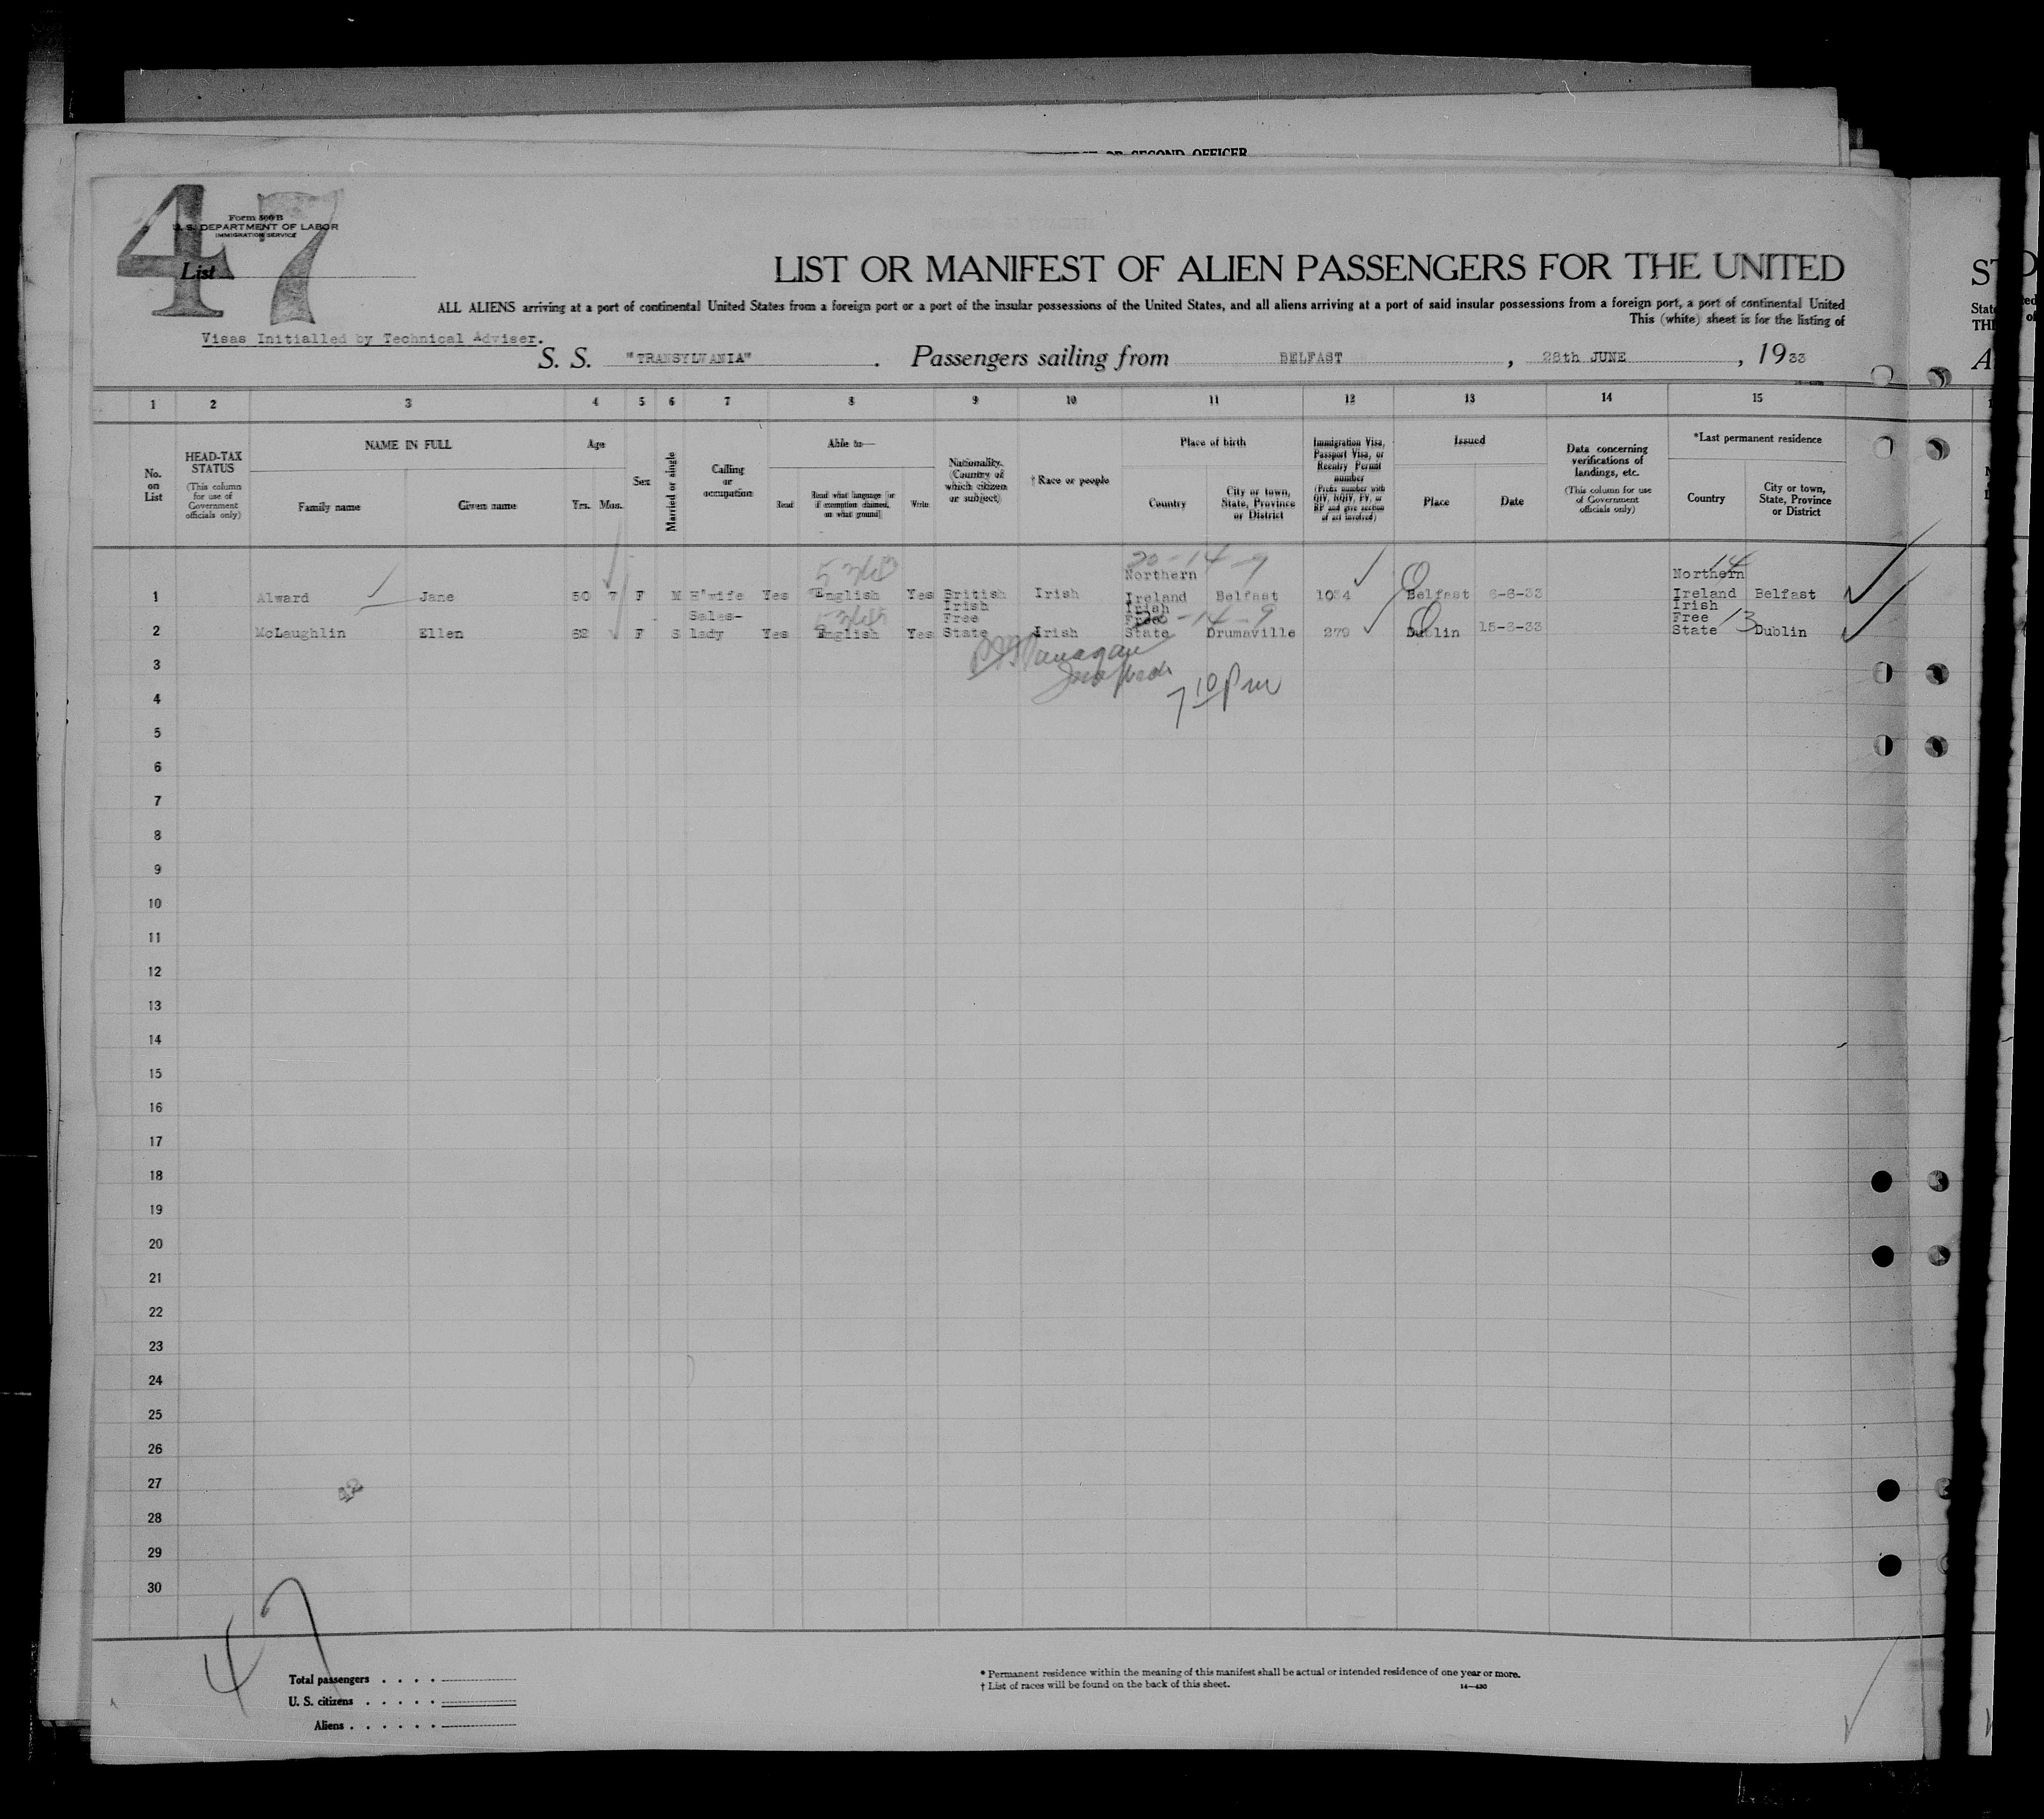 OF SECOND OFFICER
47
Form 500 B
U. S. DEPARTMENT OF LABOR
IMMIGRATION SERVICE
List
LIST OR MANIFEST OF ALIEN PASSENGERS FOR THE UNITED
ALL ALIENS arriving at a port of continental United States from a foreign port or a port of the insular possessions of the United States, and all aliens arriving at a port of said insular possessions from a foreign port, a port of continental United
This (white) sheet is for the listing of
Visas Initialled by Technical Adviser.
S. S. "TRANSYLVANIA". Passengers sailing from BELFAST, 28th JUNE, 1933
1 2 3 4 5 6 7 8 9 10 11 12 13 14 15
No. on List
HEAD-TAX STATUS (This column for use of Government officials only)
NAME IN FULL
Family name Given name
Age
Yrs. Mos.
Sex
Married or single
Calling or occupation
Able to—
Read Read what language [or if exemption claimed, on what ground] Write
Nationality. (Country of which citizen or subject)
† Race or people
Place of birth
Country City or town, State, Province or District
Immigration Visa, Passport Visa, or Reentry Permit number (Prefix number with QIV, NQIV, PV, or RP and give section of act involved)
Issued
Place Date
Data concerning verifications of landings, etc. (This column for use of Government officials only)
*Last permanent residence
Country City or town, State, Province or District
1 Alward Jane 50 7 F M H'wife Yes English Yes British Irish Northern Ireland Belfast 1034 Belfast 6-6-33 Northern Ireland Belfast
2 McLaughlin Ellen F S Sales-lady Yes English Yes Irish Free State Irish Irish Free State Drumaville 279 Dublin 15-6-33 Irish Free State Dublin
14
13
7 10 Pm
3
4
5
6
7
8
9
10
11
12
13
14
15
16
17
18
19
20
21
22
23
24
25
26
27
28
29
30
47
Total passengers . . . .
U. S. citizens . . . . .
Aliens . . . . . .
* Permanent residence within the meaning of this manifest shall be actual or intended residence of one year or more.
† List of races will be found on the back of this sheet.
14—430